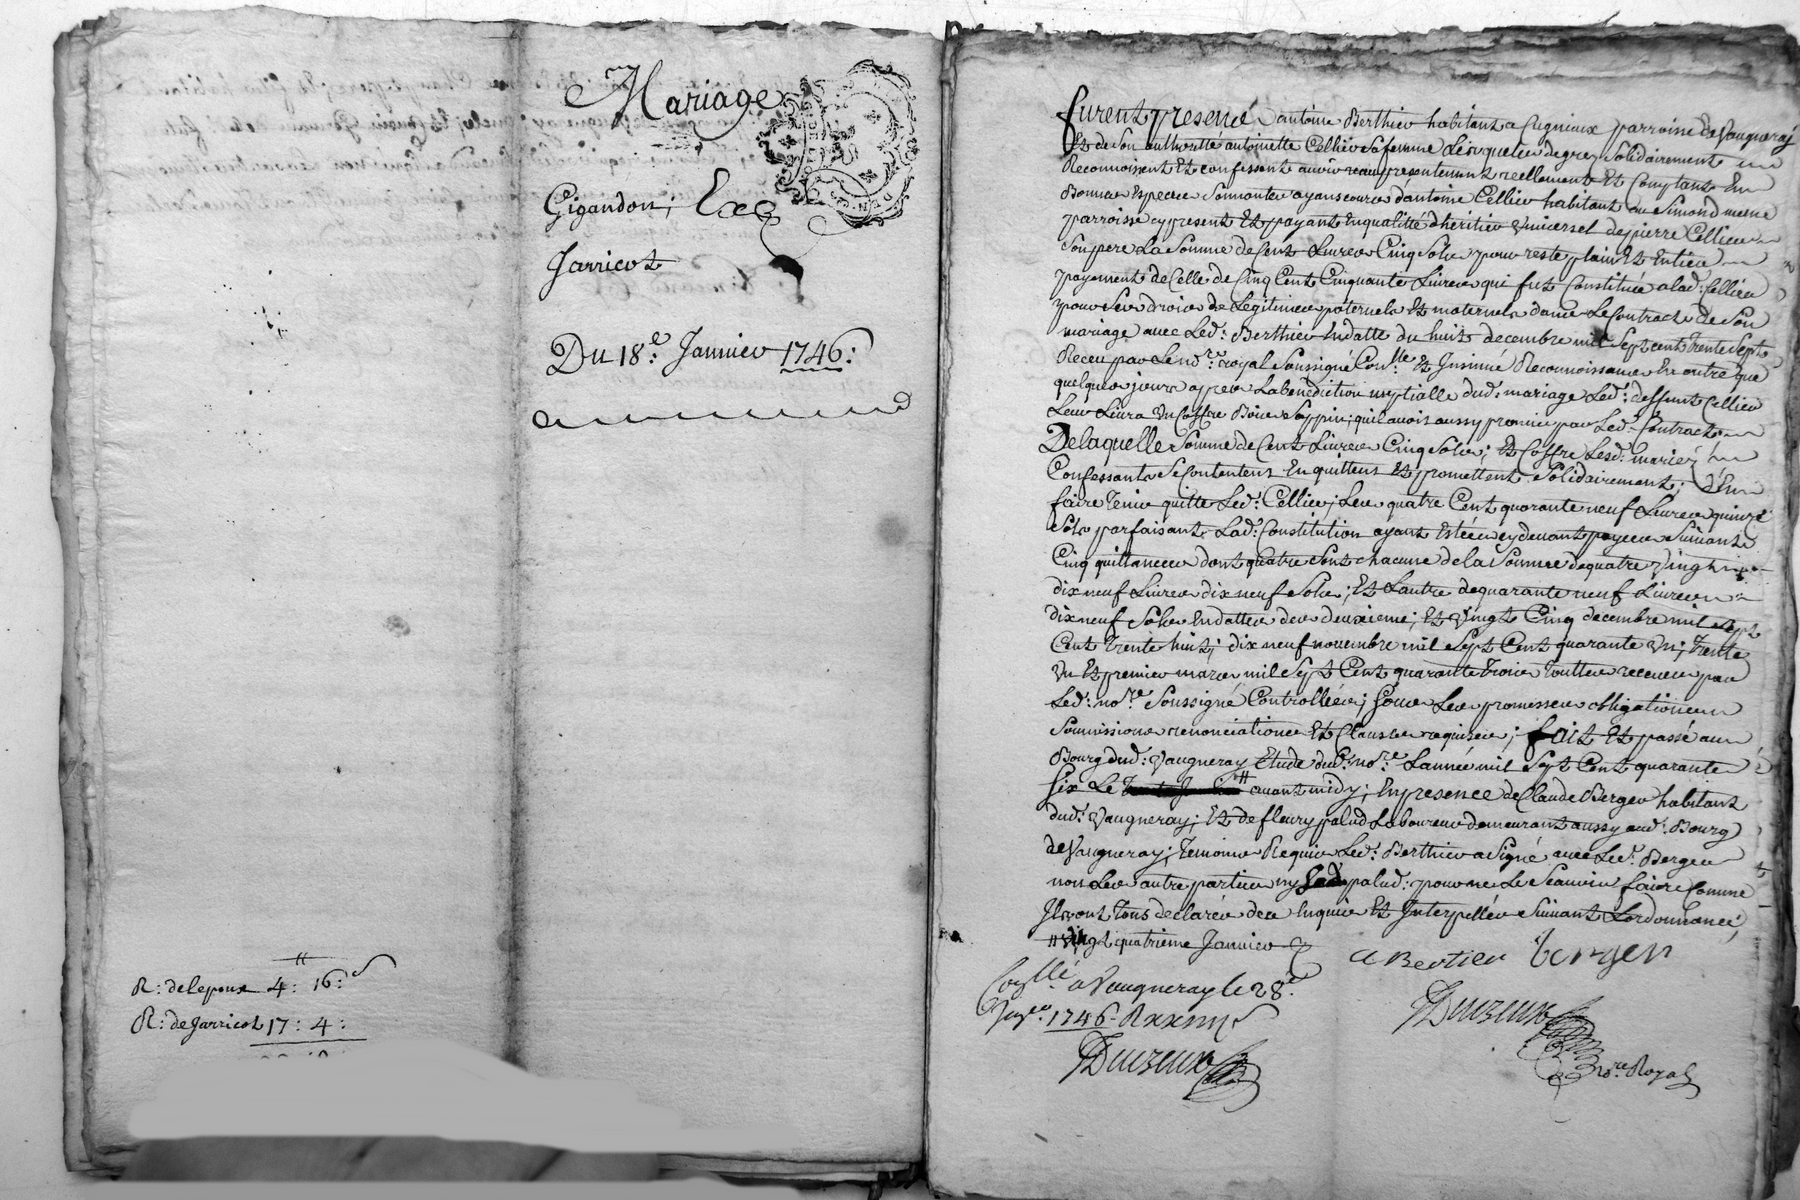 Mariage
Gigandon; Exp
Jarricot
Du 18.e Janvier 1746:
R: de lepoux 4: 16:
R: de Jarricot 17: 4:
furent presens antoine Berthier habitant a Cugnieux parroisse de Vaugneray
Et de son authorité antoinette Cellier sa femme Lesquels de gres solidairement
Reconnoissent Et confessent avoir reçu presentement reellement Et Comptant En
Bonnes Especes sonnantes ayans cours d'antoine Cellier habitant au Simond meme
parroisse cy present Et payant En qualitté d'heritier Universel de pierre Cellier
Son pere La Somme de Cent Livres Cinq Sols pour reste plain Et Entier
payement de Celle de Cinq Cent Cinquante Livres qui fut Constituée a lad: Cellier
pour Ses droits de Legitimes paternels Et maternels dans Le Contract de Son
mariage avec Led: Berthier En datte du huit decembre mil Sept cent trente Sept
Receu par Le no.re royal Soussigné Con.llé Et Insinué Reconnoissans En outre que
quelques jours appres La benediction nuptialle dud: mariage Led: deffunt Cellier
Leur Livra Un Coffre Bois Sappin; quil avoit aussy promis par Led: Contract
De laquelle Somme de Cent Livres Cinq Sols; Et Coffre Lesd: mariés
Confessants Se Contentent En quittent Et promettent Solidairement; d'En
faire Tenir quitte Led: Cellier; Les quatre Cent quarante neuf Livres quinze
Sols parfaisant Lad: Constitution ayant Estées cy devant payees Suivant
Cinq quittances dont quatre Sont chacune de la Somme de quatre Vingt
dix neuf Livres dix neuf Sols; Et L'autre de quarante neuf Livres
dix neuf Sols En dattes des deuxieme; Et Vingt Cinq decembre mil Sept
Cent Trente huit; dix neuf novembre mil Sept Cent quarante Un; Trente
Un Et premier mars mil Sept Cent quarante Trois Touttes receues par
Led: no.re Soussigné Controllées; Sous Les promesses obligations
Soumissions renonciations Et Clauses requises; fait Et passé au
Bourg dud: Vaugneray Etude dud: no.re L'année mil Sept Cent quarante
Six Le # avant midy; En presence de Claude Berger habitant
dud: Vaugneray; Et de fleury palud Laboureur demeurant aussy aud: Bourg
de Vaugneray; Temoins Requis Led: Berthier a Signé avec Led: Berger
non Les autre parties ny led palud: pour ne Le Scavoir faire Comme
Ils ont Tous declarés de ce Enquis Et Interpellés Suivant L'ordonnance,
# Vingt quatrieme Janvier
a Bertier berger
Con.llé a Vaugneray le 28.e
1746.
Duizeux
Duizeux
no.re Royal